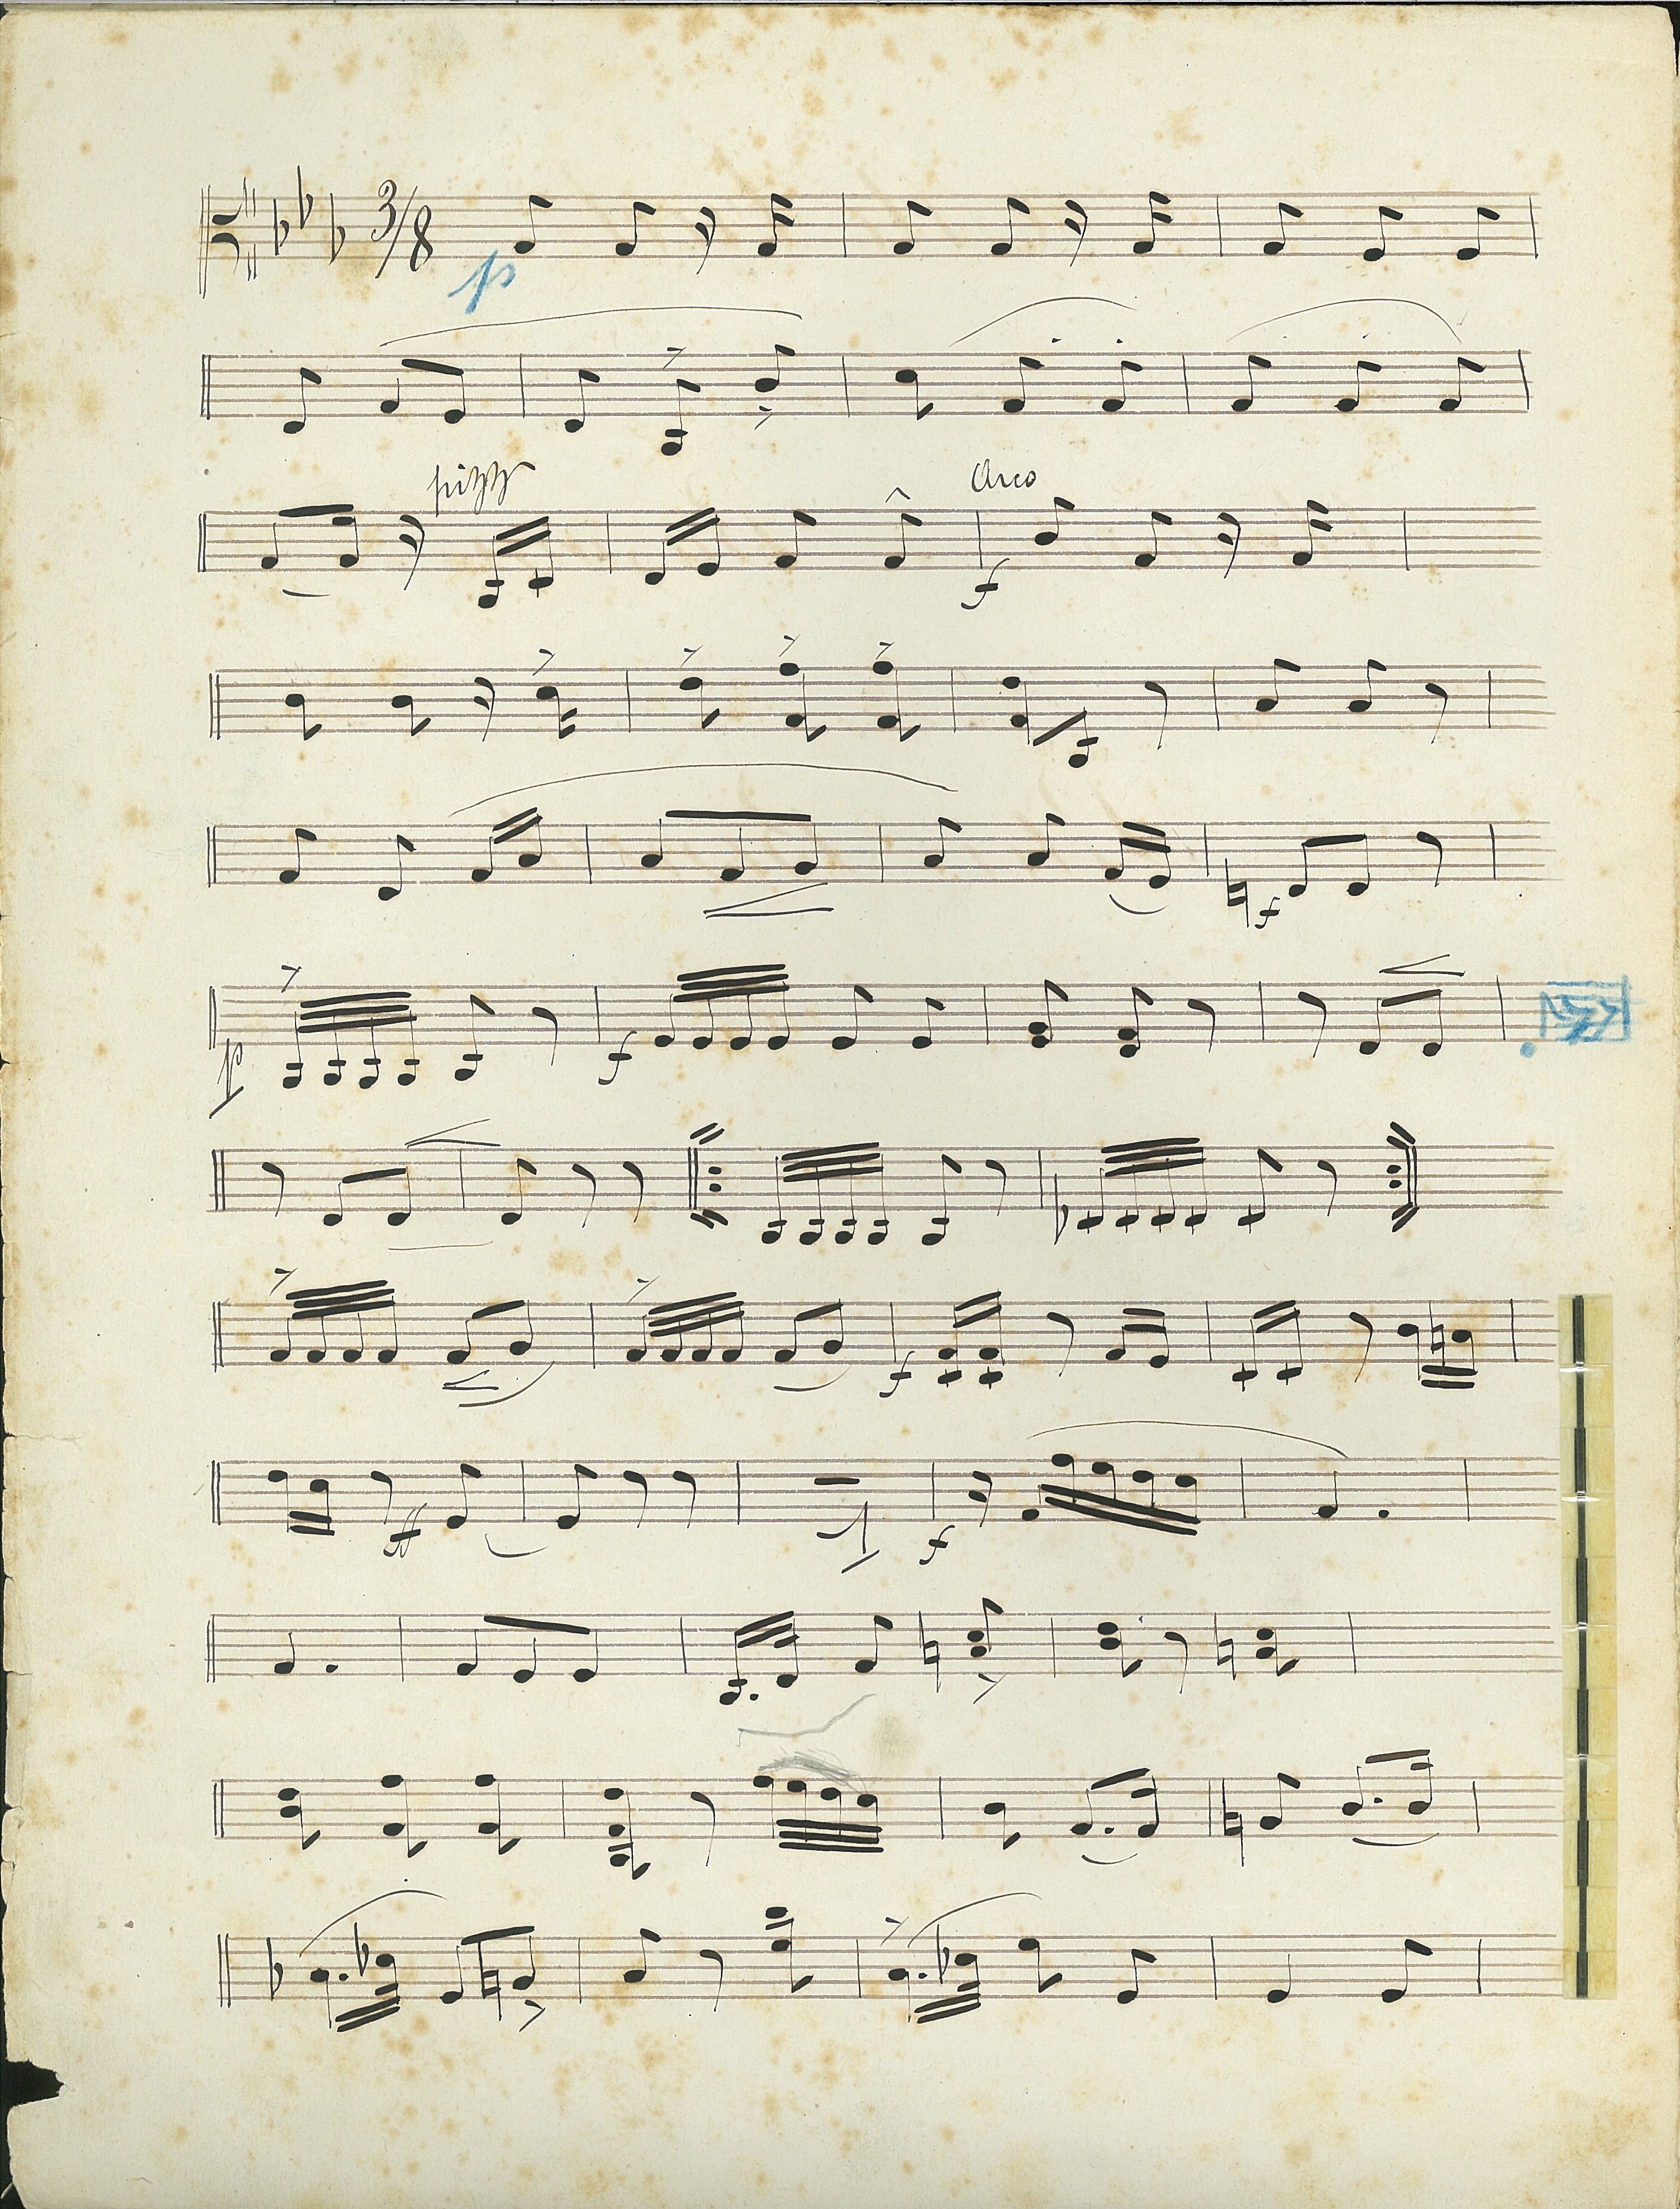 3/8
p
pizz
Arco
f
f
p
f
f
ff
f